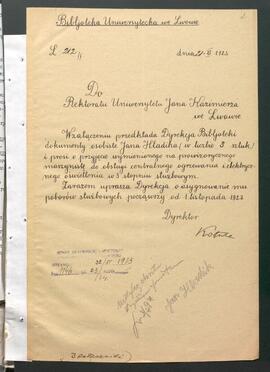 Bibljoteka Uniwersytecka we Lwowie
L 212/
dnia 21. XI 1923
Do
Rektoratu Uniwersytetu Jana Kazimierza
we Lwowie
W załączeniu przedkłada Dyrekcja Bibljoteki
dokumenty osobiste Jana Hladika (w liczbie 3 sztuk)
i prosi o przyjęcie wymienionego na prowizorycznego
maszynistę do obsługi centralnego ogrzewania i elektrycz-
nego oświetlenia w stopniu służbowym.
Zarazem uprasza Dyrekcja o asygnowanie mu
poborów służbowych począwszy od 1 listopada 1923
Dyrektor
22/XI 1923
Jan Hladik